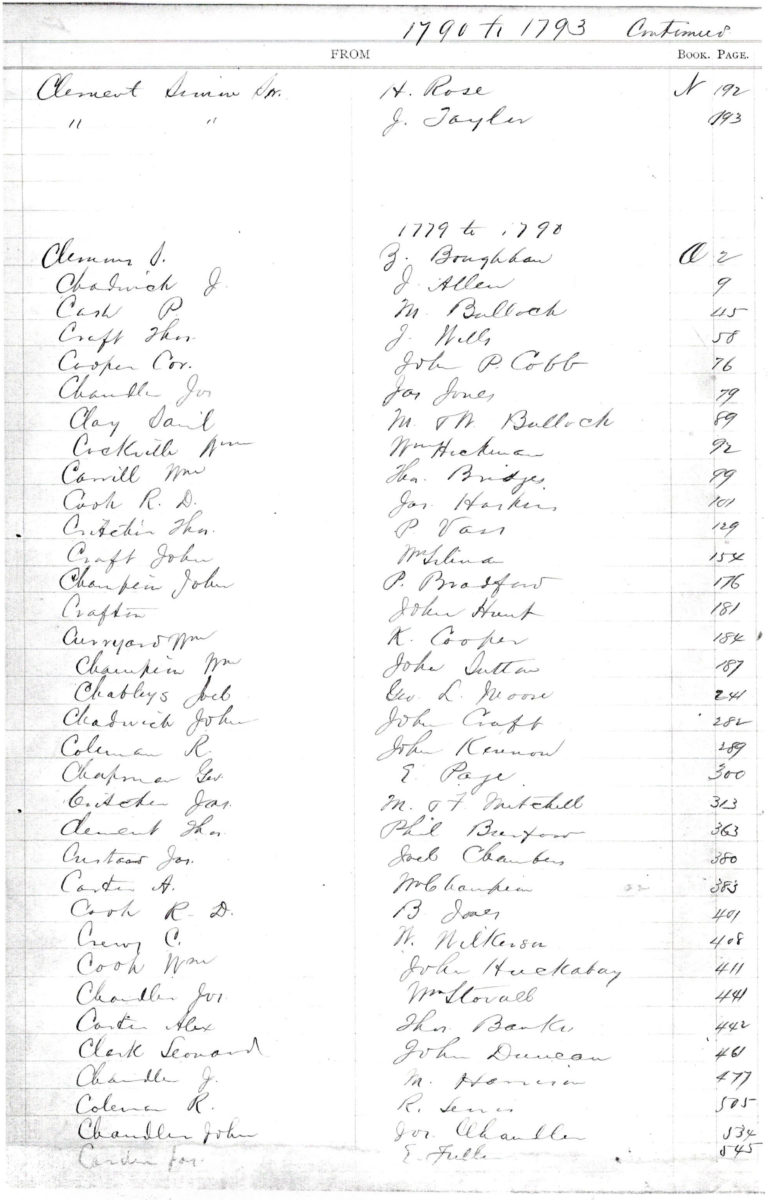 1790 to 1793 Continued
FROM BOOK. PAGE.
Clement Simon Sr. H. Rose N 192
" " J. Tayler 193
1779 to 1790
Clemmy S. Z. Boughhan O 2
Chadwick J. J. Allen 9
Cash P M. Bullock 45
Craft Thos. J. Wells 58
Cooper Cor. John P. Cobb 76
Chandler Jos Jas Jones 79
Clay Danil M. & W Bullock 89
Cockville Wm Wm Hickman 92
Carrill Wm Thos. Bridges 99
Cook R. D. Jas. Harkins 101
Critchir Thos. P Vass 129
Craft John Wm 154
Champin John P. Bradford 176
Crafton John Hunt 181
Curryard Wm K. Cooper 184
Champin Wm John Sutton 187
Chableys Joel Geo L. Moore 241
Chadwick John John Craft 282
Coleman R. John Kennon 289
Chapman Geo E. Page 300
Critcher Jas. M. & F Mitchell 313
Clement Thos. Phil Burford 363
Custard Jas. Joel Chambers 380
Carter A. Wm Champin 383
Cook R. D. B Jones 401
Crewy C. W. Wilkerson 408
Cook Wm John Huckabay 411
Chandler Jos Wm Stovall 441
Carter Alex Thos Banks 442
Clark Leonard John Duncan 461
Chandler J. M. Harrison 477
Coleman R. R. 505
Chandler John Jos. Chandler 534
Carder Jas. E Fuller 545